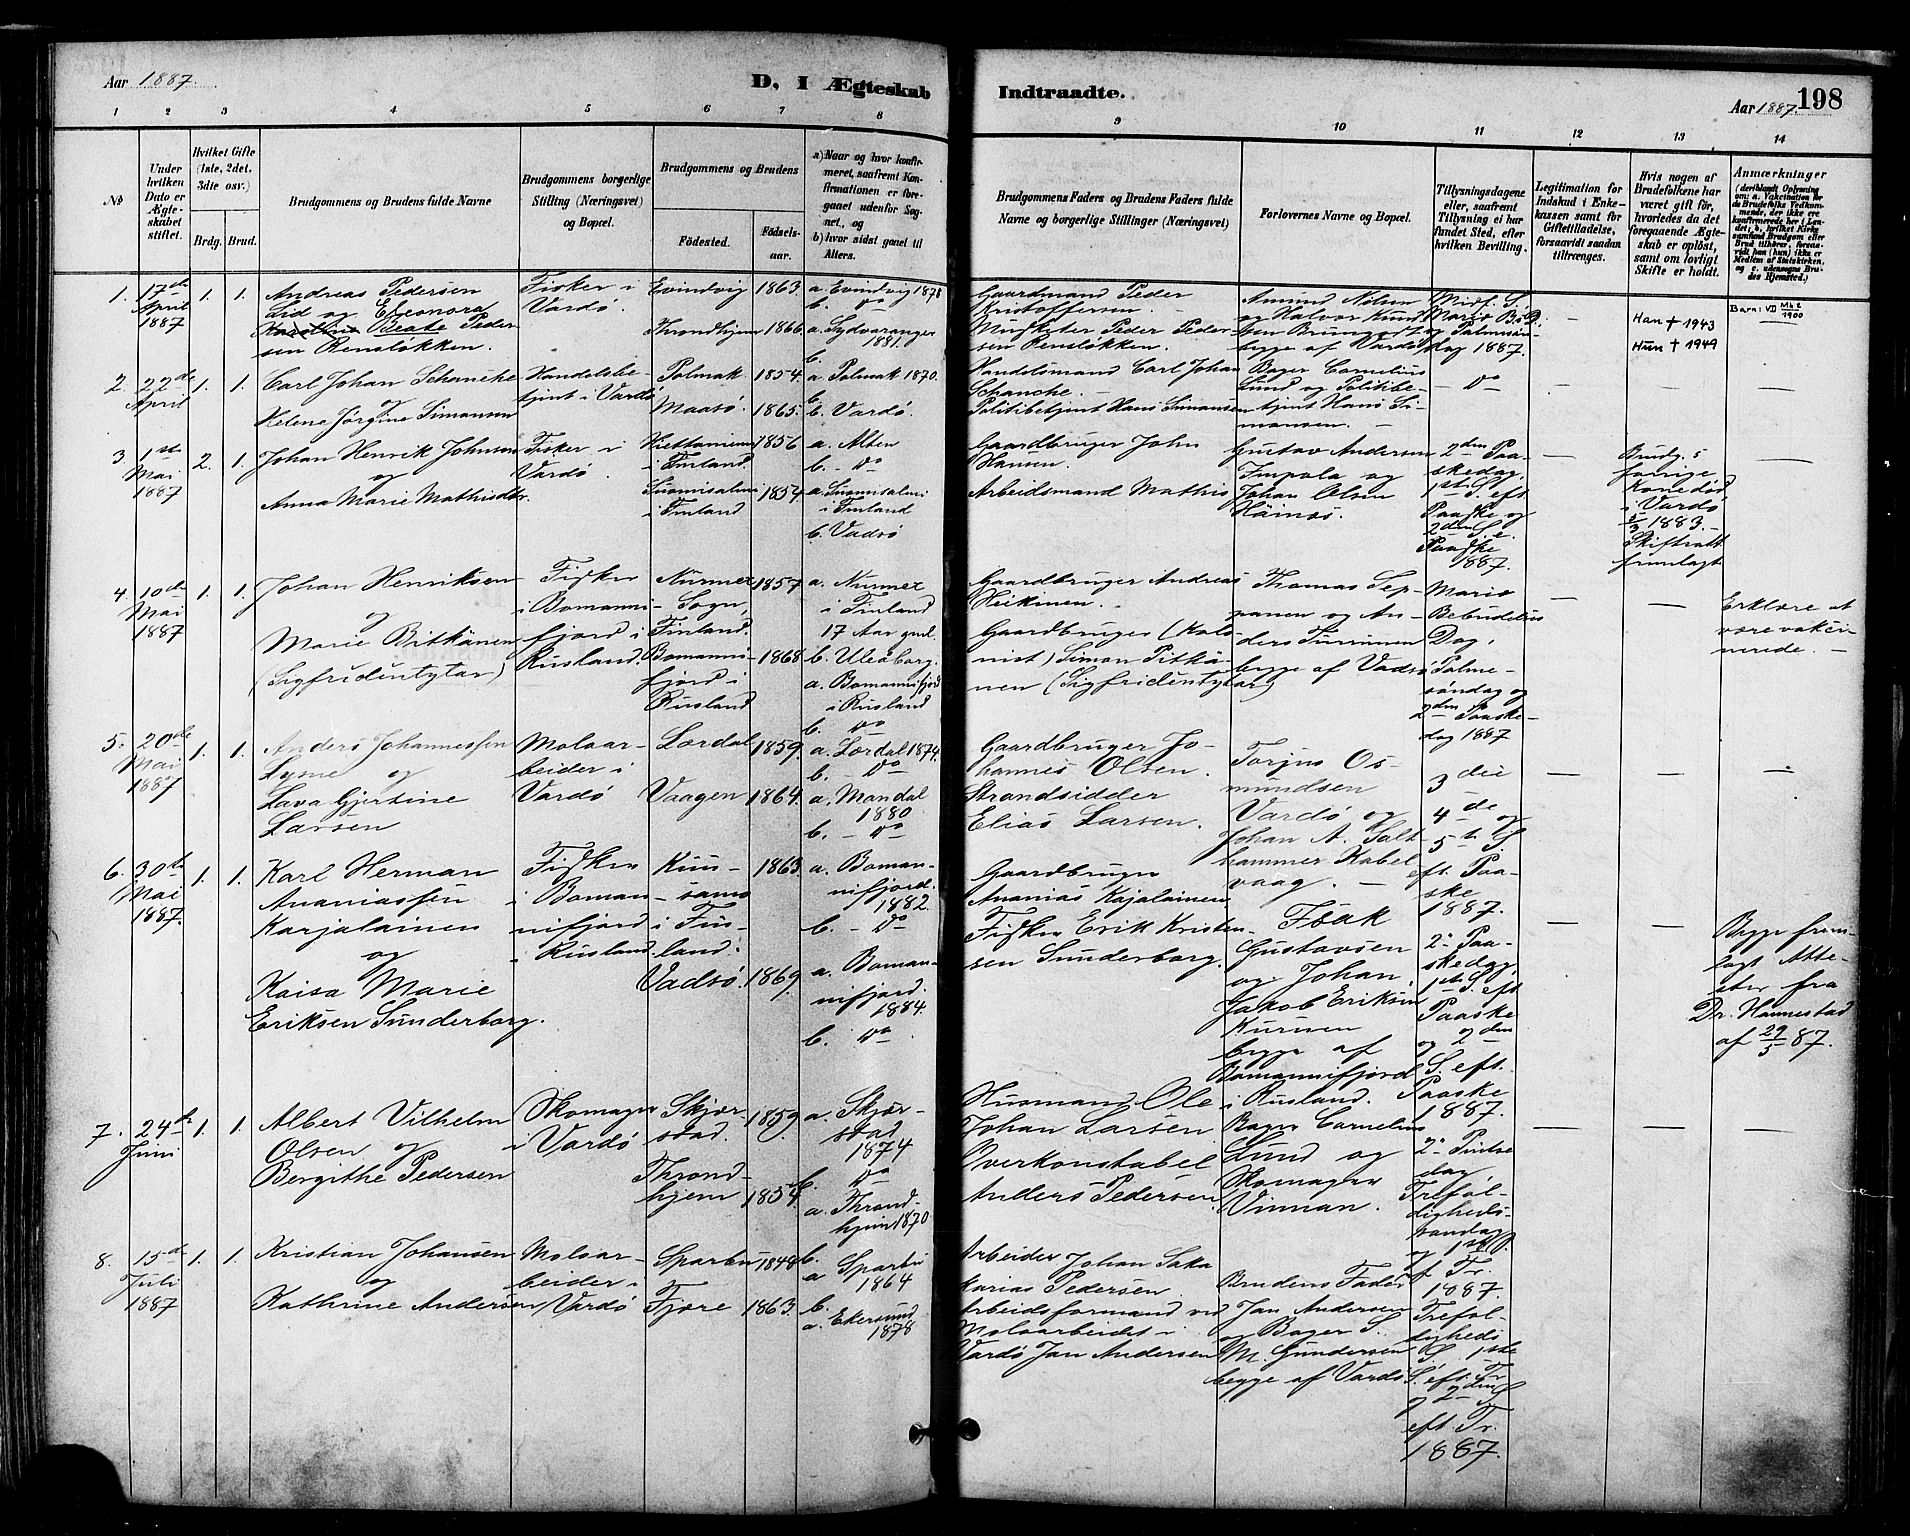 Aar 1887.
D, I Ægteskab
Indtraadte.
Aar 1887. 198
1 2 3 4 5 6 7 8 9 10 11 12 13 14
No
Under hvilken Dato er Ægteskabet stiftet.
Hvilket Gifte (1ste, 2det, 3die osv.)
Brdg. Brud.
Brudgommens og Brudens fulde Navne
Brudgommens borgerlige Stilling (Næringsvei) og Bopæl.
Brudgommens og Brudens
Fødested. Fødselsaar.
a) Naar og hvor konfirmeret, saafremt Konfirmationen er foregaaet udenfor Sognet, og
b) hvor sidst gaaet til Alters.
Brudgommens Faders og Brudens Faders fulde Navne og borgerlige Stillinger (Næringsvei)
Forlovernes Navne og Bopæl.
Tillysningsdagene eller, saafremt Tillysning ei har fundet Sted, efter hvilken Bevilling.
Legitimation for Indskud i Enkekassen samt for Giftetilladelse, forsaavidt saadan tiltrænges.
Hvis nogen af Brudefolkene har været gift før, hvorledes da det foregaaende Ægteskab er opløst, samt om lovligt Skifte er holdt.
Anmærkninger
1. 17de April 1887 1. 1.
Andreas Pedersen
Lid og Eleonora
Karoline Beate Peder-
sen Rensløkken.
Fisker i
Vardø.
Evindvig 1863.
Throndhjem 1866.
a. Evindvig 1878
b. do
a. Sydvaranger
1881.
b.
Gaardmand Peder
Kristoffersen.
Musketer Peder Peder-
sen Rensløkken.
Amund Nilsen
og Halvor Knud-
sen
begge af Vardø
Midf. S.
Mariæ B. D.
og Palmesøn-
dag 1887.
—
Han + 1943
Hun + 1949
Barn: VII Mk 2
1900
2. 22de April 1. 1.
Carl Johan Schanche
og
Helene Jørgine Simonsen
Handelsbe-
tjent i Vardø
Polmak 1854.
Maasø. 1865.
a. Polmak 1870.
b.
b. Vardø.
Handelsmand Carl Johan
Schanche. —
Politibetjent Hans Simonsen
Bager Cornelius
Lund og Politibe-
tjent Hans Si-
monsen. —
— do
—
—
—
3. 1ste Mai 1887 2. 1.
Johan Henrik Johnsen
og
Anna Marie Mathisdtr.
Fisker i
Vardø.
i Finland. 1856
Suomisalmi
i Finland 1854
a. Alten
b. do
a. Suomisalmi
i Finland
b. Vadsø
Gaardbruger John
Hansen.
Arbeidsmand Mathis
Gustav Andersen
Impola og
Johan Olsen
Häinäs.
2den Paa-
skedag,
1ste S. eft
Paaske og
2den S. e.
Paaske
1887.
Brudg.s
forrige
Kone død
i Vardø
5/3 1883. —
Skifteatt.
fremlagt
—
4. 10de Mai 1887 1. 1.
Johan Henriksen
og
Marie Pitkänen
(Sigfridentytar)
Fisker
i Bomanni-
fjord i
Rusland.
Nurmes
Sogn,
Finland. 1857
Bomanni-
fjord i
Rusland 1868
a. Nurmes
i Finland
17 Aar gml.
b. Uleåborg.
a. Bomannifjord
i Rusland
b. do
Gaardbruger Andreas
Heikinen. —
Gaardbruger (Kolo-
nist) Simon Pitkä-
nen (Sigfridentytar)
Thomas Sep-
panen og An-
ders Turunen
begge af Vadsø
Mariæ
Bebudelses
Dag,
Palme-
søndag og
2den Paaske-
dag 1887
—
—
Erklære at
være vakci-
nerede. —
5. 20de Mai 1887 1. 1.
Anders Johannessen
Lysne og
Lava Gjertine
Larsen
Moloar-
beider i
Vardø
Lærdal 1859.
Vaagen 1864.
a. Lærdal 1874.
b. — do
a. Mandal
1880
b. — do
Gaardbruger Jo-
hannes Olsen.
Strandsidder
Elias Larsen.
Torjus Os-
mundsen
Vardø og
Johan A. Salt-
hammer Kabel-
vaag. —
3die
4de og
5te S.
eft. Paa-
ske
1887.
—
—
—
6. 30te Mai 1887. 1. 1.
Karl Herman
Ananiassen
Karjalainen
og
Kaisa Marie
Eriksen Sunderborg.
Fisker
i Boman-
nifjord
i Rusland.
Kuu-
samo
i Fin-
land. 1863
Vadsø. 1869.
a. Boman-
nifjord.
1882.
b. — do
a. Boman-
nifjord.
1884.
b. do
Gaardbruger
Ananias Kajalainen
Fisker Erik Kristen-
sen Sunderborg.
Isak
Gustavsen
og Johan
Jakob Eriksen
Kurven
begge af
Bomannifjord
i Rusland.
2. Paa-
skedag
1ste S. eft
Paaske
og 2den
S. eft.
Paaske
1887.
—
—
Begge frem-
lagt Atte-
ster fra
Dr. Hannestad
af 29/5 87.
7. 24de Juni 1. 1.
Albert Vilhelm
Olsen og
Bergithe Pedersen
Skomager
i Vardø
Skjær-
stad. 1859.
Thrond-
hjem 1854.
a. Skjær-
stad
1874
b. do
a. Thrond-
hjem 1870
b.
Husmand Ole
Johan Larsen
Overkonstabel
Anders Pedersen
Bager Cornelius
Lund og
Skomager
Vinnan.
2. Pintse
dag
Trefol-
digheds-
søndag
og 1ste S.
ef. Tr.
1887.
—
—
—
8. 15de Juli 1887 1. 1.
Kristian Johansen
og
Kathrine Andersen
Moloar-
beider i
Vardø
Sparbu 1848
Fjære 1863.
a Sparbu
1864
b.
a. Ekersund
1878
Arbeider Johan Saka-
rias Pedersen.
Arbeidsformand ved
Moloarbeidet i
Vardø Jan Andersen
Brudens Fader
Jan Andersen
og Bager S.
M. Gundersen
begge af Vardø
Trefol-
digheds
S. 1ste
S. eft. Tr
og 2den S
eft. Tr.
1887.